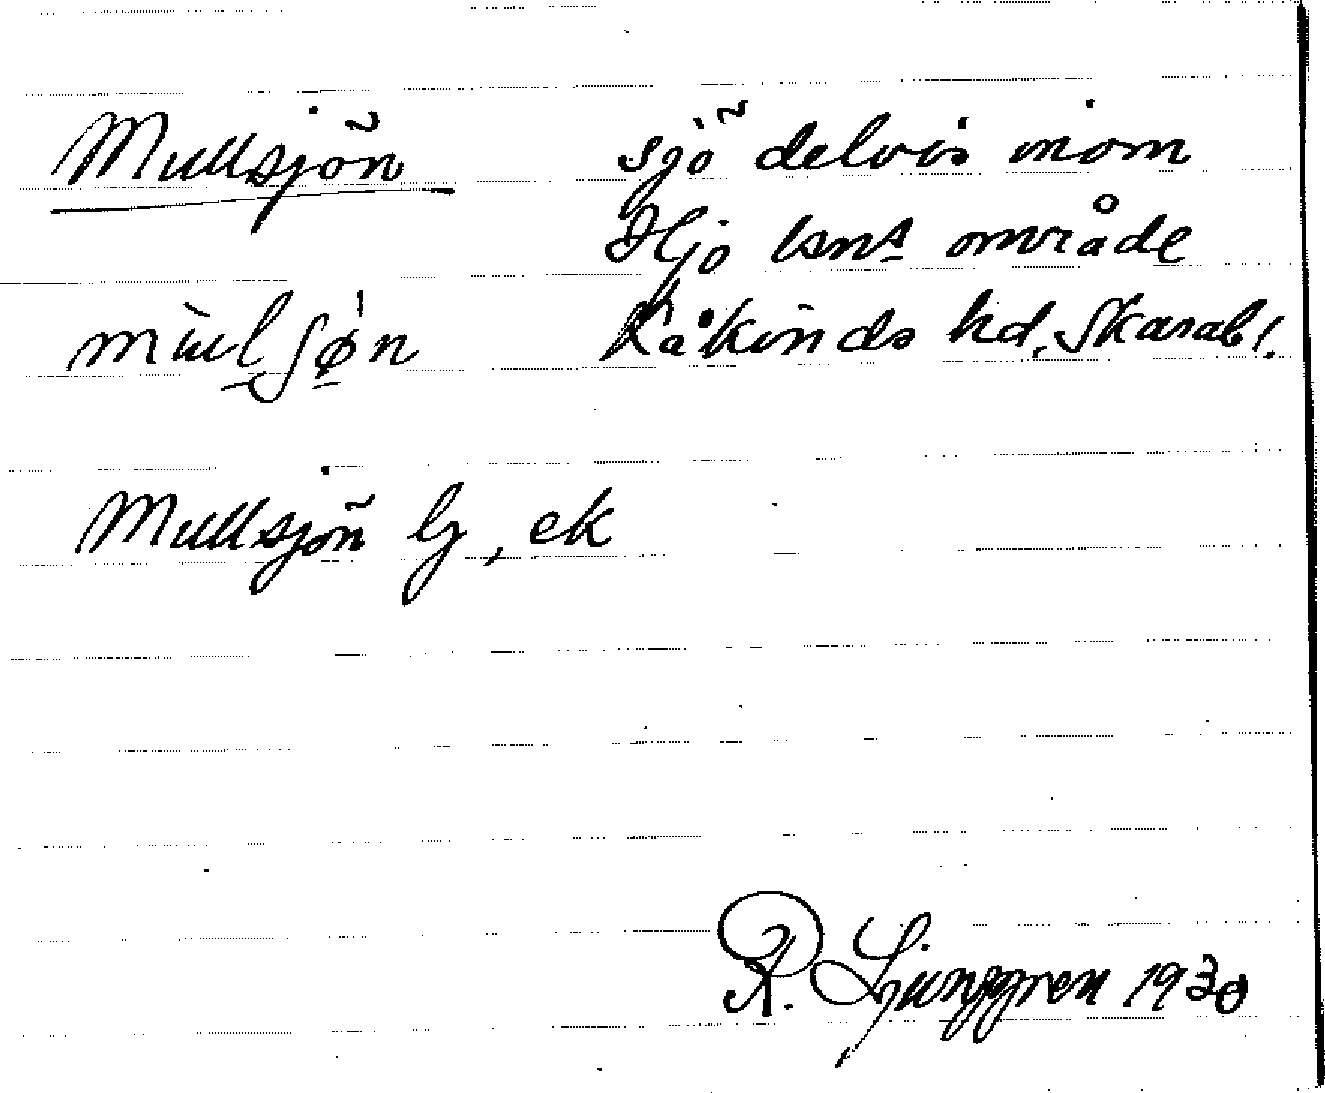 Mullsjön
sjö delvis inom
Hjo lsns område
Kåkinds hd, Skarab l.
mùlʃǿn
Mullsjön Gj, ek
R. Ljunggren 1930